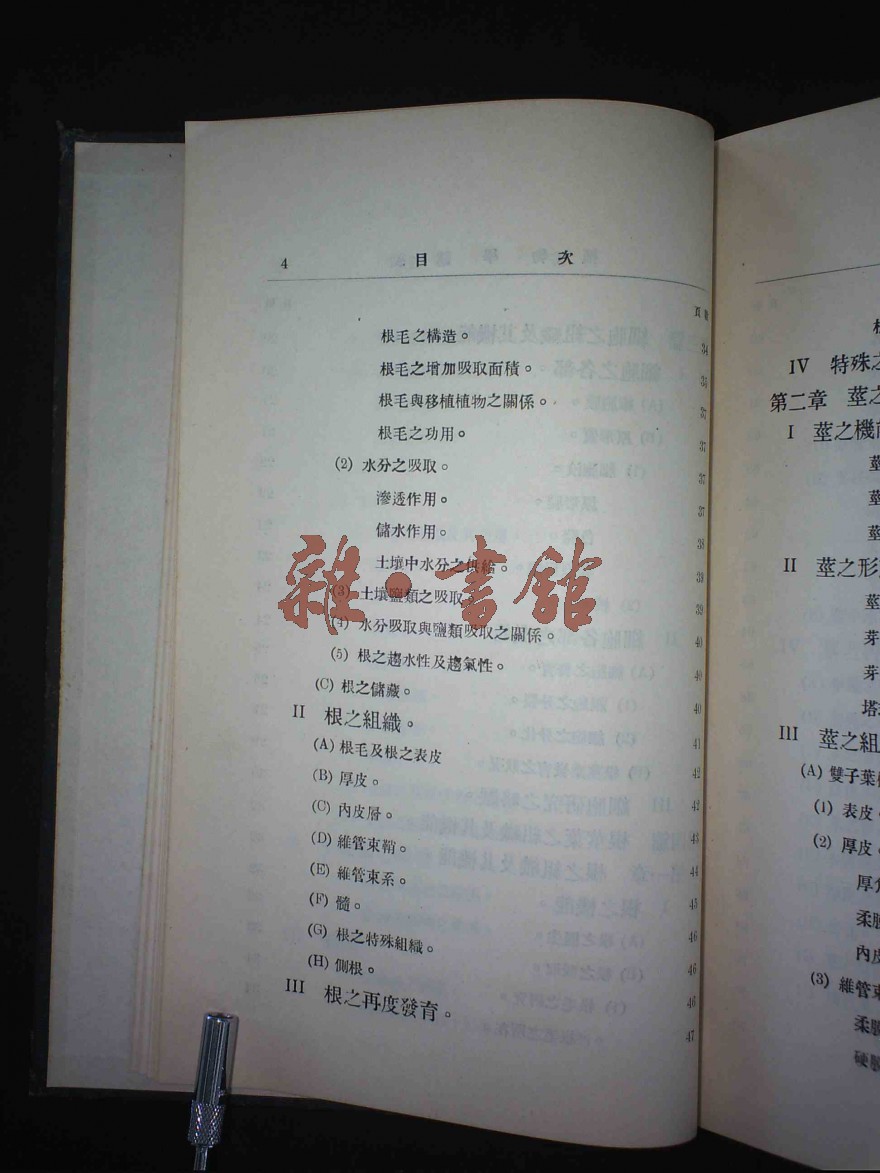 4 目 次
頁數
根毛之構造。 34
根毛之增加吸取面積。 35
根毛與移植植物之關係。 35
根毛之功用。 37
(2) 水分之吸取。 37
滲透作用。 37
儲水作用。 38
土壤中水分之供給。 39
(3) 土壤鹽類之吸取。 39
(4) 水分吸取與鹽類吸取之關係。 40
(5) 根之趨水性及趨氣性。 40
(C) 根之儲藏。 40
II 根之組織。 41
(A) 根毛及根之表皮 42
(B) 厚皮。 42
(C) 內皮層。 43
(D) 維管束鞘。 44
(E) 維管束系。 45
(F) 髓。 46
(G) 根之特殊組織。 46
(H) 側根。 46
III 根之再度發育。 47
雜·書館
IV 特殊之
第二章 莖之
I 莖之機
莖
莖
莖
II 莖之形
莖
芽
芽
塔
III 莖之組
(A) 雙子葉
(1) 表皮。
(2) 厚皮。
厚角
柔
內皮
(3) 維管束
柔
硬